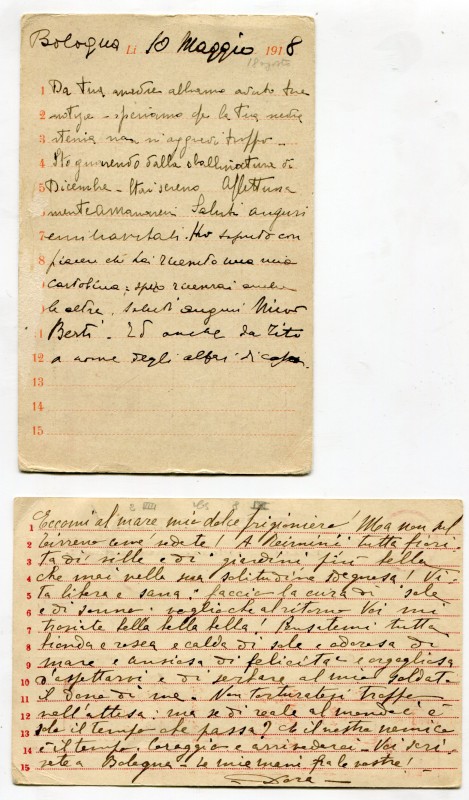 Bologna Li 10 Maggio 1918
18 agosto
1 Da tua madre abbiamo avuto tue
2 notizie - speriamo che la tua neura
3 stenia non si aggravi troppo -
4 Sto guarendo dalla slollicatura di
5 Dicembre - Stai sereno. Affettuosa
6 mente Saluti auguri
7 Ho saputo con
8 piacere che hai ricevuto una mia
cartolina: spero riceverai anche
le altre. Saluti auguri
Berti. Ed anche da Tito
12 a nome degli altri di casa.
13
14
15
1 Eccomi al mare mio dolce prigioniero! Ma non sul
2 Tirreno come vedete! A Rimini tutta fiori
3 ta di ville e di giardini più bella
4 che mai nella sua solitudine sdegnosa! Vi
5 ta libera e sana: faccio la cura di sole
6 e di sonno: voglio che al ritorno Voi mi
7 troviate bella bella bella! Pensatemi tutta
8 bionda e rosea e calda di sole e odorosa di
9 mare e ansiosa di felicità e orgogliosa
10 d'aspettarvi e di serbare al mio Soldato
11 il dono di me. Non torturatevi troppo
12 nell'attesa: ma se di reale al mondo c'è
13 solo il tempo che passa? Ch il nostro nemico
14 è il tempo. Coraggio e arrivederci - Voi scri
15 vete a Bologna - Le mie mani fra le vostre!
Dora